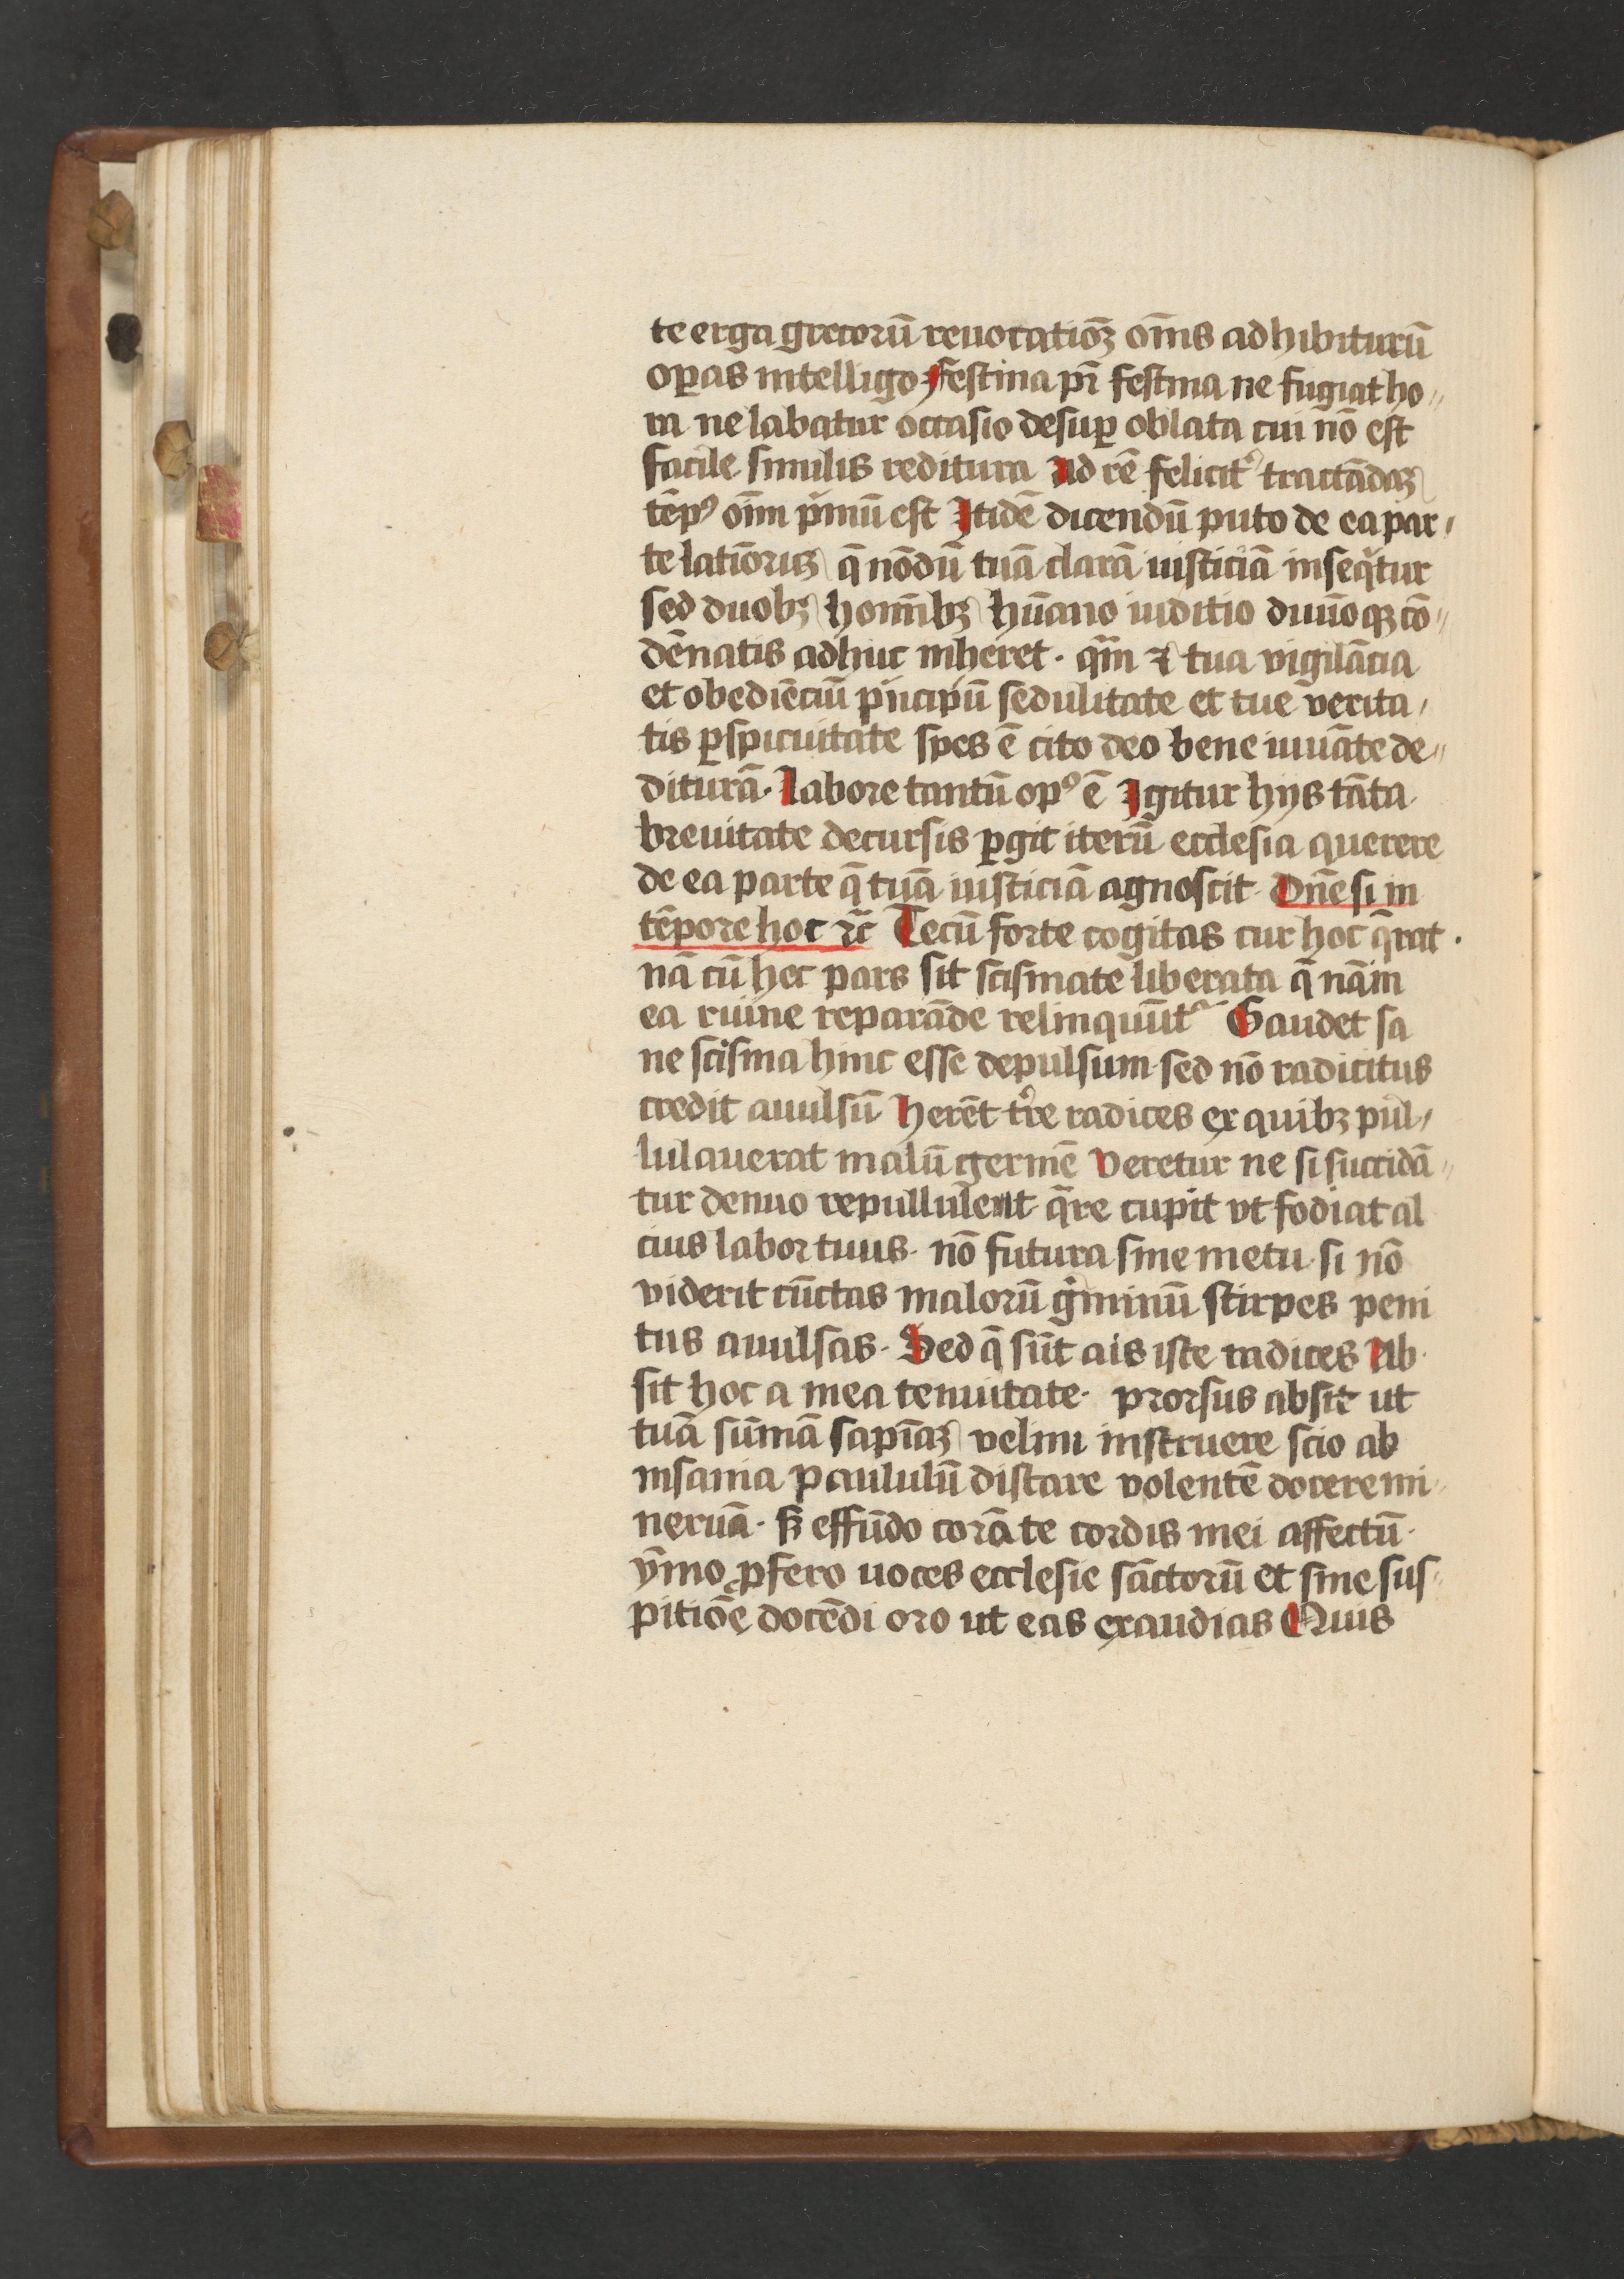 te erga grecorū reuocatiōꝫ om̄s adhibiturū
oꝑas intelligo festina pr̄ festina ne fugiat ho〃
ra ne labatur occasio desuꝑ oblata cui nō est
facile similis reditura Ad rē felicit᷑ tractādaꝫ
tēpꝰ om̄i pⁱmū est Itidē dicendū puto de ea par〃
te latiōruꝫ q̄ nōdū tuā clarā iusticiā inseqⁱtur
sed duobꝫ homībꝫ hūano iuditio diuīoqꝫ cō〃
dēnatis adhuc inheret · qm̄ ⁊ tua vigilācia
et obediēciū pⁱncipū sedulitate et tue verita〃
tis ꝑspicuitate spes ē cito deo bene iuuāte de〃
diturā · Labore tantū opꝰ ē Igitur hijs tāta
breuitate decursis ꝑgit iterū ecclesia querere
de ea parte q̄ tuā iusticiā agnoscit · Dn̄e si in
tēpore hoc ⁊c̄ Tecū forte cogitas cur hoc q̄rat ·
nā cū hec pars sit scismate liberata q̄ nām
ea ruine reparāde relinquūt᷑ Gaudet sa
ne scisma hinc esse depulsum sed nō radicitus
credit auulsū Herēt tr̄re radices ex quibꝫ pul〃
lulauerat malū germē Veretur ne si succidā〃
tur denuo repullulent q̄re cupit vt fodiat al
cius labor tuus · nō futura sine metu si nō
viderit cūctas malorū gⁱminū stirpes peni
tus auulsas · Sed q̄ sūt ais iste radices Ab
sit hoc a mea tenuitate · prorsus absit ut
tuā sūmā sapīaꝫ velim instruere scio ab
insania paululū distare volentē docere mi〃
neruā · sꝫ effūdo corā te cordis mei affectū ·
ȳmo ꝓfero uoces ecclesie sāctorū et sine sus〃
pitiōe docēdi oro ut eas exaudias Quis